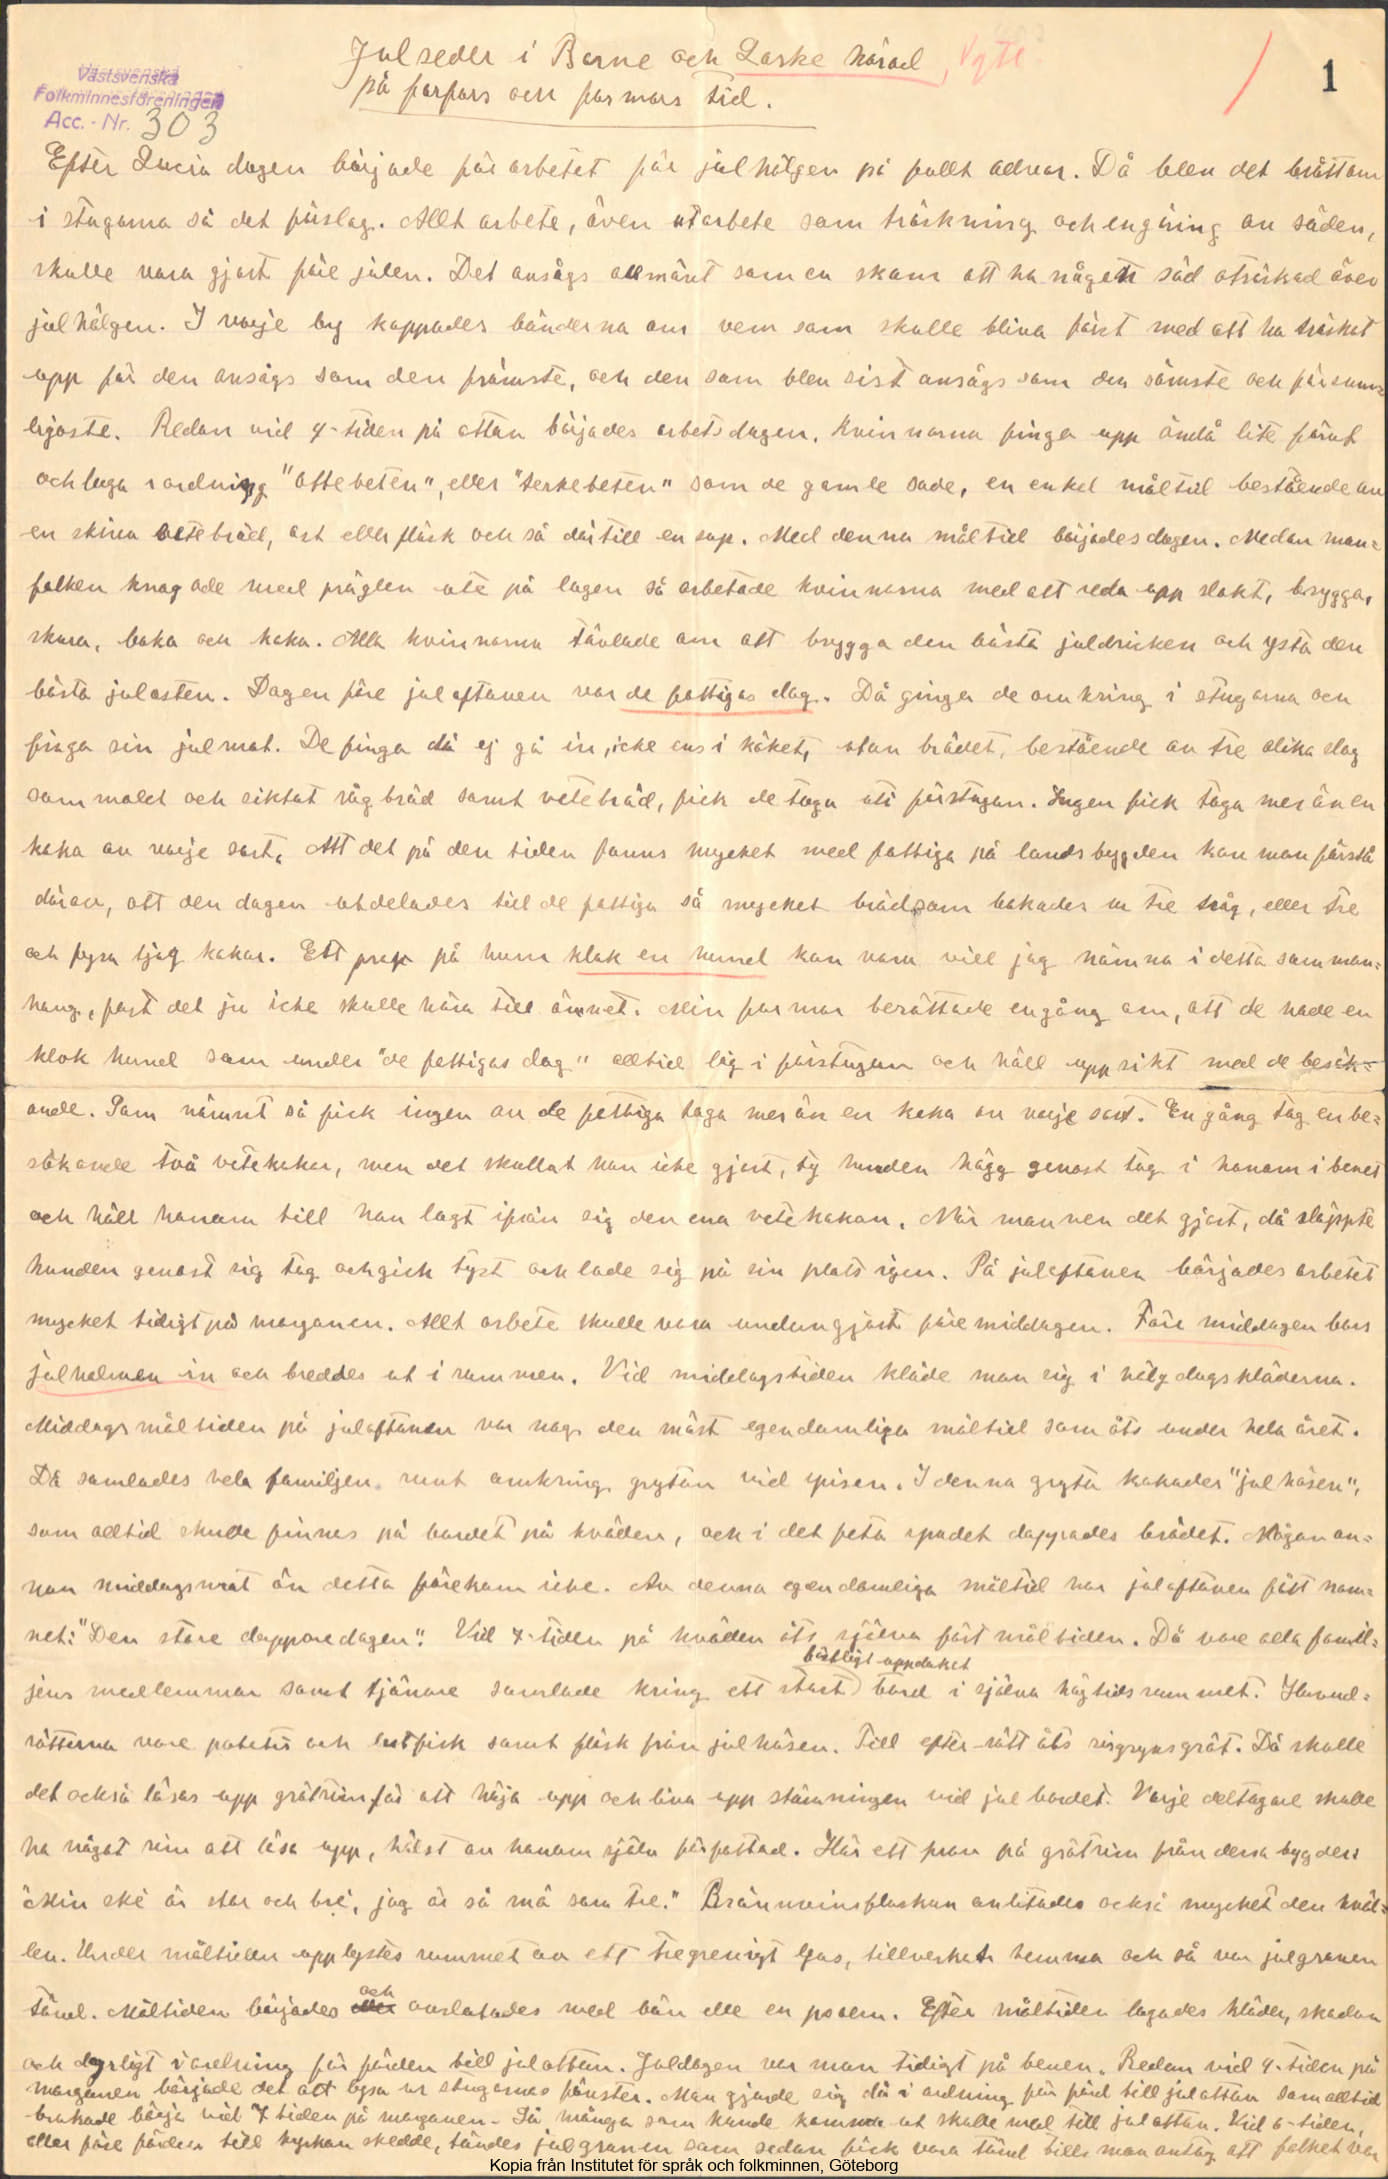 Västsvenska
Folkminnesföreningen
Acc. - Nr. 303
Julseder i Barne och Laske härad, Vgtl.
på farfars och farmors tid.
1
Efter Lucia dagen började förarbetet för julhälgen på fullt allvar. Då blev det bråttom
i stugorna så det förslog. Allt arbete, även utarbete som tröskning och engöring av säden,
skulle vara gjort före julen. Det ansågs allmänt som en skam att ha någon säd otröskad över
julhälgen. I varje by kappades bönderna om vem som skulle bliva först med att ha tröskat
upp för den ansågs som den främste, och den som blev sist ansågs som den sämste och försum=
ligaste. Redan vid 4-tiden på ottan börjades arbetsdagen. Kvinnorna fingo upp ändå lite förut
och laga i ordning "ottebeten", eller "terkebeten" som de gamle sade, en enkel måltid bestående av
en skiva vetebröd, ost eller fläsk och så därtill en sup. Med denna måltid börjades dagen. Medan man=
folken knogade med präglen ute på logen så arbetade kvinnorna med att reda upp slakt, brygga,
skura, baka och koka. Alla kvinnorna tävlade om att brygga den bästa juldrickan och ysta den
bästa julosten. Dagen före julaftonen var de fattigas dag. Då gingo de omkring i stugorna och
fingo sin julmat. De fingo då ej gå in, icke ens i köket, utan brödet, bestående av tre olika slag
sammalet och siktat rågbröd samt vetebröd, fick de taga uti förstugan. Ingen fick taga mer än en
kaka av varje sort. Att det på den tiden fanns mycket med fattiga på landsbygden kan man förstå
därav, att den dagen utdelades till de fattiga så mycket bröd som bakades ur tre tråg, eller tre
och fyra tjog kakor. Ett prov på hur klok en hund kan vara vill jag nämna i detta samman=
hang, fast det ju icke skulle höra till ämnet. Min farmor berättade en gång om, att de hade en
klok hund som under "de fattigas dag" alltid låg i förstugan och höll uppsikt med de besök=
ande. Som nämnt så fick ingen av de fattiga taga mer än en kaka av varje sort. En gång tog en be=
sökande två vetekakor, men det skullat han icke gjort, ty hunden högg genast tag i honom i benet
och höll honom till han lagt ifrån sig den ena vetekakan. När mannen det gjort, då släppte
hunden genast sig tag och gick tyst och lade sig på sin plats igen. På julaftonen börjades arbetet
mycket tidigt på morgonen. Allt arbete skulle vara undangjort före middagen. Före middagen bars
julhalmen in och breddes ut i rummen. Vid middagstiden klädde man sig i hälgdagskläderna.
Middagsmåltiden på julaftonen var nog den mäst egendomliga måltid som åts under hela året.
Då samlades hela familjen runt omkring grytan vid spisen. I denna gryta kokades "julkösen",
som alltid skulle finnas på bordet på kvällen, och i det feta spadet doppades brödet. Någon an=
nan middagsmat än detta förekom icke. Av denna egendomliga måltid har julaftonen fått nam=
net: "Den store dopparedagen". Vid 7-tiden på kvällen åts själva fästmåltiden. Då vore alla famil=
jens medlemmar samt tjänare samlade kring ett stort festligt uppdukat bord i själva högtidsrummet. Huvud=
rätterna vore potatis och lutfisk samt fläsk från julkösen. Till efter-rätt åts risgrynsgröt. Då skulle
det också läsas upp grötrim för att höja upp och liva upp stämningen vid julbordet. Varje deltagare skulle
ha något rim att läsa upp, hälst av honom själv författad. Här ett prov på grötrim från dessa bygder:
"Min ske är stor och bre, jag är så må som tre." Brännvinsflaskan anlitades också mycket den kväl=
len. Under måltiden upplystes rummet av ett tregrenigt ljus, tillverkat hemma och så var julgranen
tänd. Måltiden börjades och avslutades med bön elle en psalm. Efter måltiden lagades kläder, skodon
och dyrligt i ordning för färden till julottan. Juldagen var man tidigt på benen. Redan vid 4-tiden på
morgonen började det att lysa ur stugornas fönster. Man gjorde sig då i ordning för färd till julottan som alltid
brukade börja vid 7 tiden på morgonen. Så många som kunde komma ut skulle med till julottan. Vid 6-tiden,
eller före färden till kyrkan skedde, tändes julgranen som sedan fick vara tänd tills man antog att folket var
Kopia från Institutet för språk och folkminnen, Göteborg